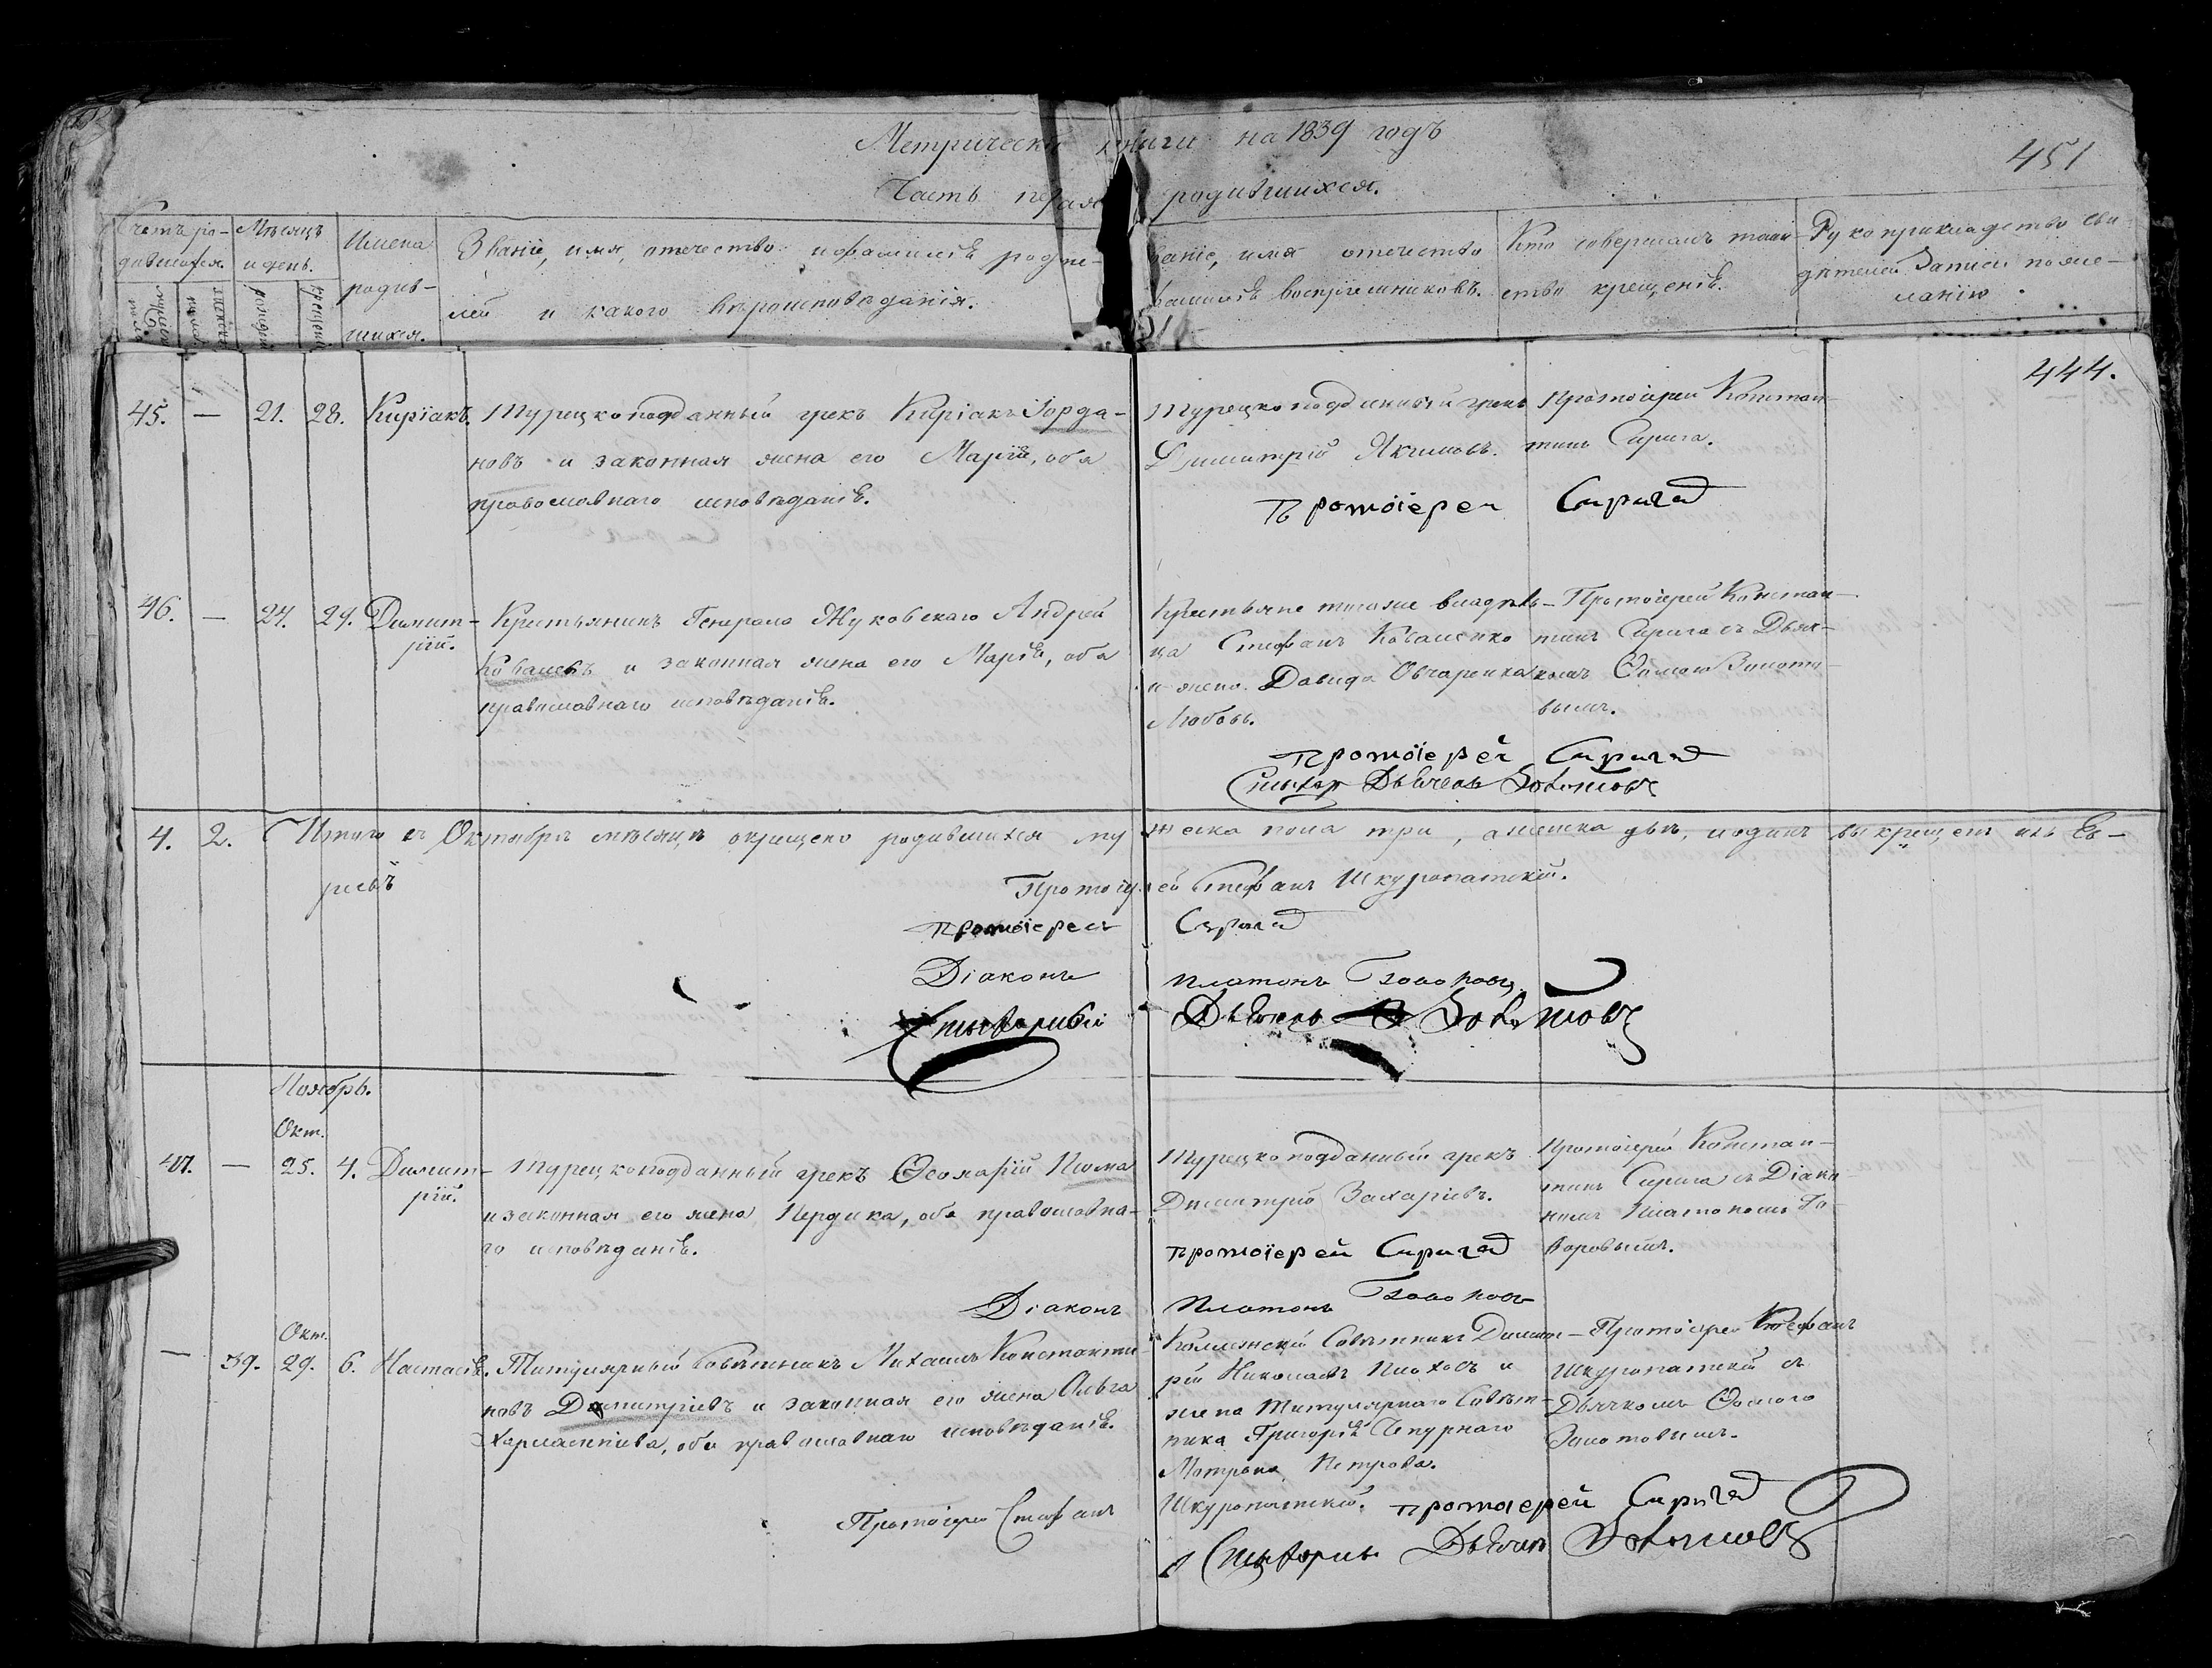 Метрическ книги на 1839 годъ
451
Часть первая родившихся.
Счетъ ро-
дившихся.
Мѣсяцъ
и день.
Имена
родив-
шихся.
Званіе, имя, отечество и фамилія роди-
лей и какого вѣроисповѣданія.
ваніе, имя отечество
фамилія воспріемниковъ.
Кто совершалъ таин-
ство крещенія.
Рукоприкладство сви-
дѣтелей записи по же-
ланію.
444.
45. — 21. 28. Киріакъ. Турецкоподданный грекъ Киріакъ Іорда-
новъ и законная жена его Марія, оба
православнаго исповѣданія.
Турецкоподданный грекъ
Димитрій Якимовъ.
Протоіерей Констан-
тинъ Сирига.
Протоіерей Сирига
46. — 24. 29. Димит-
рій.
Крестьянинъ Генерала Жуковскаго Андрей
Ковалевъ и законная жена его Марія, оба
православнаго исповѣданія.
Крестьяне того же владѣль-
ца Стефанъ Коваленко
и жена Давида Овчаренка
Любовь.
Протоіерей Констан-
тинъ Сирига съ Дьяч-
комъ Ѳомою Золото-
вымъ.
Протоіерей Сирига
Дьячекъ Золотовъ
4. 2. Итого въ Октябрѣ мѣсяцѣ окрещено родившихся мужеска пола три, а женска двѣ, и одинъ выкрещенъ изъ Ев-
реевъ
Протоіерей Стефанъ Шкуропатскій.
Протоіерей Сирига
Діаконъ Платонъ Говоровъ
Дьячекъ Золотовъ
Ноябрь.
Окт.
47. — 25. 4. Димит-
рій.
Турецкоподданный грекъ Ѳеохарій Псома
и законная его жена Пердика, оба православна-
го исповѣданія.
Турецкоподданный грекъ
Димитрій Захаріевъ.
Протоіерей Констан-
тинъ Сирига съ Діако-
номъ Платономъ Го-
воровымъ.
Протоіерей Сирига
Діаконъ Платонъ Говоровъ
Окт.
— 39. 29. 6. Настасія. Титулярный Совѣтникъ Михаилъ Константи
новъ Димитріевъ и законная его жена Ольга
Харлампіева, оба православнаго исповѣданія.
Коллежскій Совѣтникъ Димит-
рій Николаевъ Плохосъ и
жена Титулярнаго Совѣт-
ника Григорія Чепурнаго
Матрона Петрова.
Протоіерей Стефанъ
Шкуропатскій съ
Дьячкомъ Ѳомою
Золотовымъ.
Протоіерей Стефанъ Шкуропатскій. Протоіерей Сирига
Дьячекъ Золотовъ